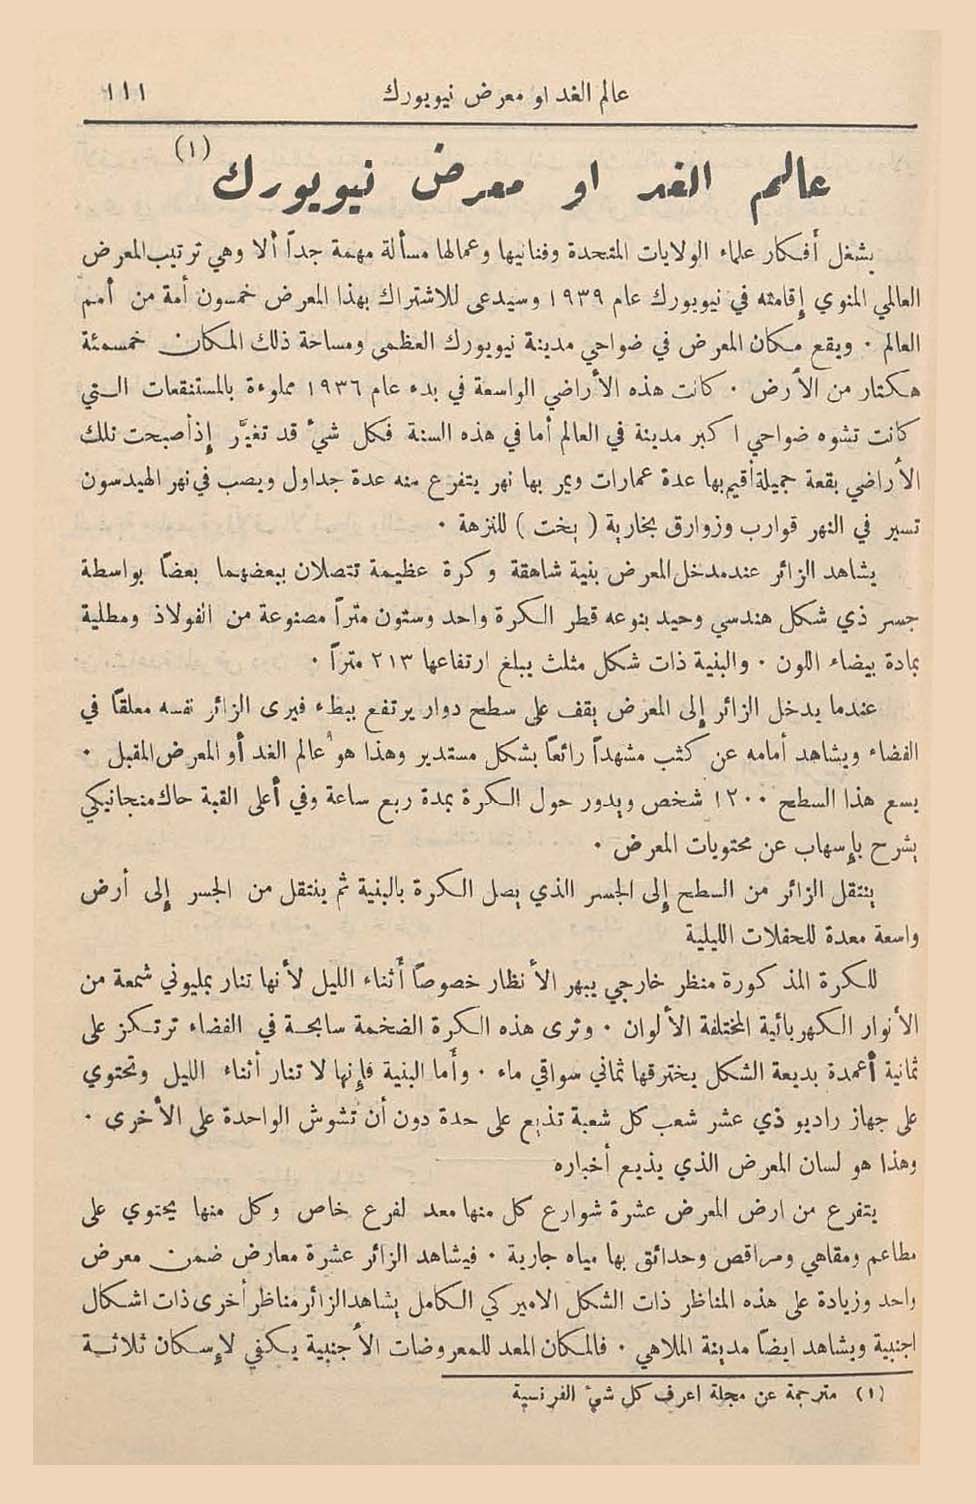 عالم الغد او معرض نيويورك ١١١
عالم الغد او معرض نيويورك (١)
يشغل أفكار علماء الولايات المتحدة وفنانيها وعمالها مسألة مهمة جداً ألا وهي ترتيب المعرض
العالمي المنوي إقامته في نيويورك عام ١٩٣٩ وسيدعى للاشتراك بهذا المعرض خمسون أمة من أمم
العالم ٠ ويقع مكان المعرض في ضواحي مدينة نيويورك العظمى ومساحة ذلك المكان خمسمئة
هكتار من الأرض ٠ كانت هذه الأراضي الواسعة في بدء عام ١٩٣٦ مملوءة بالمستنقعات التي
كانت تشوه ضواحي اكبر مدينة في العالم أما في هذه السنة فكل شيء قد تغيَّر إذ أصبحت تلك
الأراضي بقعة جميلة أقيم بها عدة عمارات ويمر بها نهر يتفرع منه عدة جداول ويصب في نهر الهيدسون
تسير في النهر قوارب وزوارق بخارية ( يخت ) للنزهة ٠
يشاهد الزائر عند مدخل المعرض بنية شاهقة وكرة عظيمة تتصلان ببعضهما بعضاً بواسطة
جسر ذي شكل هندسي وحيد بنوعه قطر الكرة واحد وستون متراً مصنوعة من الفولاذ ومطلية
بمادة بيضاء اللون ٠ والبنية ذات شكل مثلث يبلغ ارتفاعها ٢١٣ متراً ٠
عندما يدخل الزائر إلى المعرض يقف على سطح دوار يرتفع ببطء فيرى الزائر نفسه معلقاً في
الفضاء ويشاهد أمامه عن كثب مشهداً رائعاً بشكل مستدير وهذا هو عالم الغد أو المعرض المقبل ٠
يسع هذا السطح ١٢٠٠ شخص ويدور حول الكرة بمدة ربع ساعة وفي أعلى القبة حاك منجانيكي
يشرح بإسهاب عن محتويات المعرض ٠
ينتقل الزائر من السطح إلى الجسر الذي يصل الكرة بالبنية ثم ينتقل من الجسر إلى أرض
واسعة معدة للحفلات الليلية
للكرة المذكورة منظر خارجي يبهر الأنظار خصوصاً أثناء الليل لأنها تنار بمليوني شمعة من
الأنوار الكهربائية المختلفة الألوان ٠ وترى هذه الكرة الضخمة سابحة في الفضاء ترتكز على
ثمانية أعمدة بديعة الشكل يخترقها ثماني سواقي ماء ٠ وأما البنية فإنها لا تنار أثناء الليل وتحتوي
على جهاز راديو ذي عشر شعب كل شعبة تذيع على حدة دون أن تشوش الواحدة على الأخرى ٠
وهذا هو لسان المعرض الذي يذيع أخباره
يتفرع من ارض المعرض عشرة شوارع كل منها معد لفرع خاص وكل منها يحتوي على
مطاعم ومقاهي ومراقص وحدائق بها مياه جارية ٠ فيشاهد الزائر عشرة معارض ضمن معرض
واحد وزيادة على هذه المناظر ذات الشكل الاميركي الكامل يشاهد الزائر مناظر أخرى ذات اشكال
اجنبية ويشاهد ايضاً مدينة الملاهي ٠ فالمكان المعد للمعروضات الأجنبية يكفي لإسكان ثلاثة
(١) مترجمة عن مجلة اعرف كل شيء الفرنسية